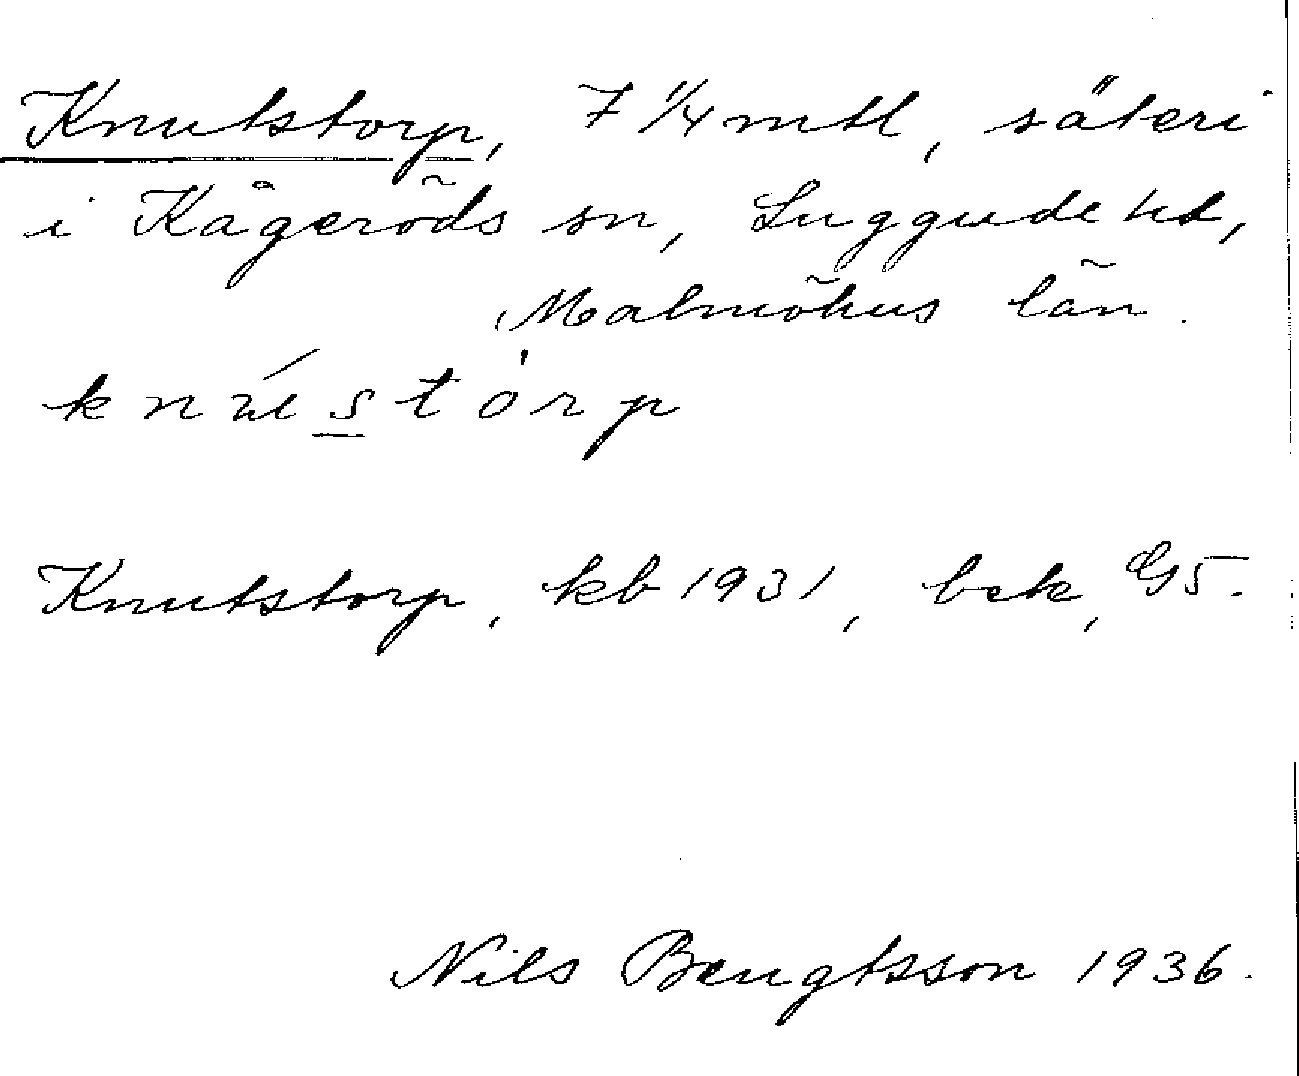 Knutstorp, 7 1/4 mtl, säteri
i Kågeröds sn, Luggude hd,
Malmöhus län.
knústòrp
Knutstorp, kb 1931, bek, G5.
Nils Bengtsson 1936.